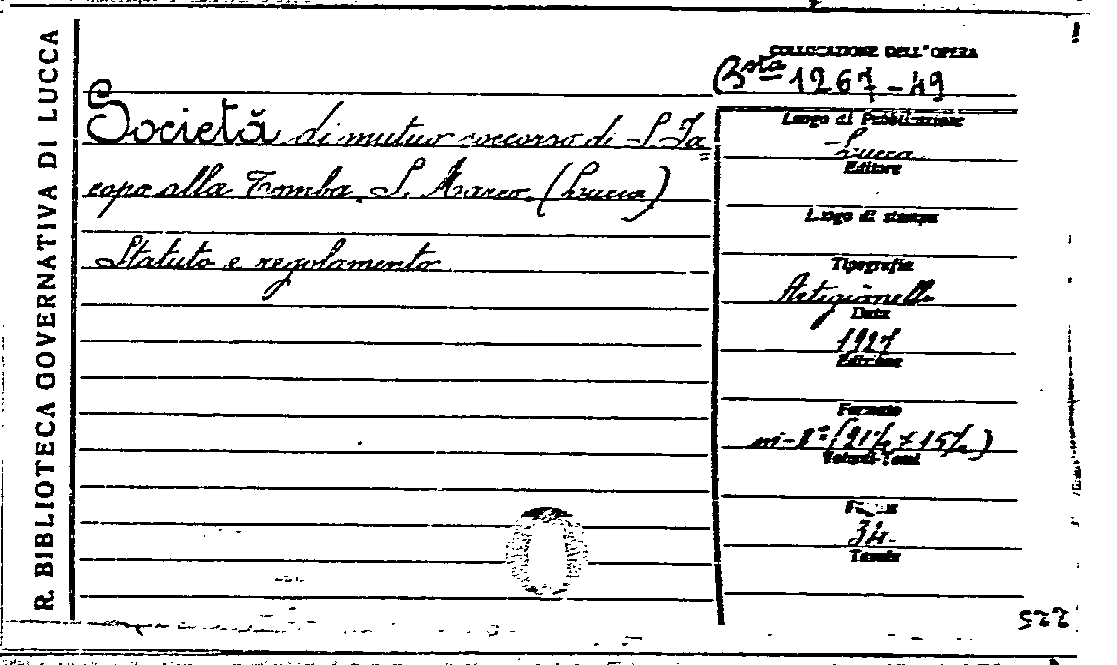 R. BIBLIOTECA GOVERNATIVA DI LUCCA
Società di mutuo soccorso di S. Ja=
copo alla Tomba. S. Marco. (Lucca)
Statuto e regolamento
COLLOCAZIONE DELL'OPERA
Bsta 1267-49
Luogo di Pubblicazione
Lucca
Editore
Luogo di stampa
Tipografia
Artigianelli
Data
1927
Edizione
Formato
in-8° (21½ x 15½)
Volumi-Tomi
Pagine
34.
Tavole
522